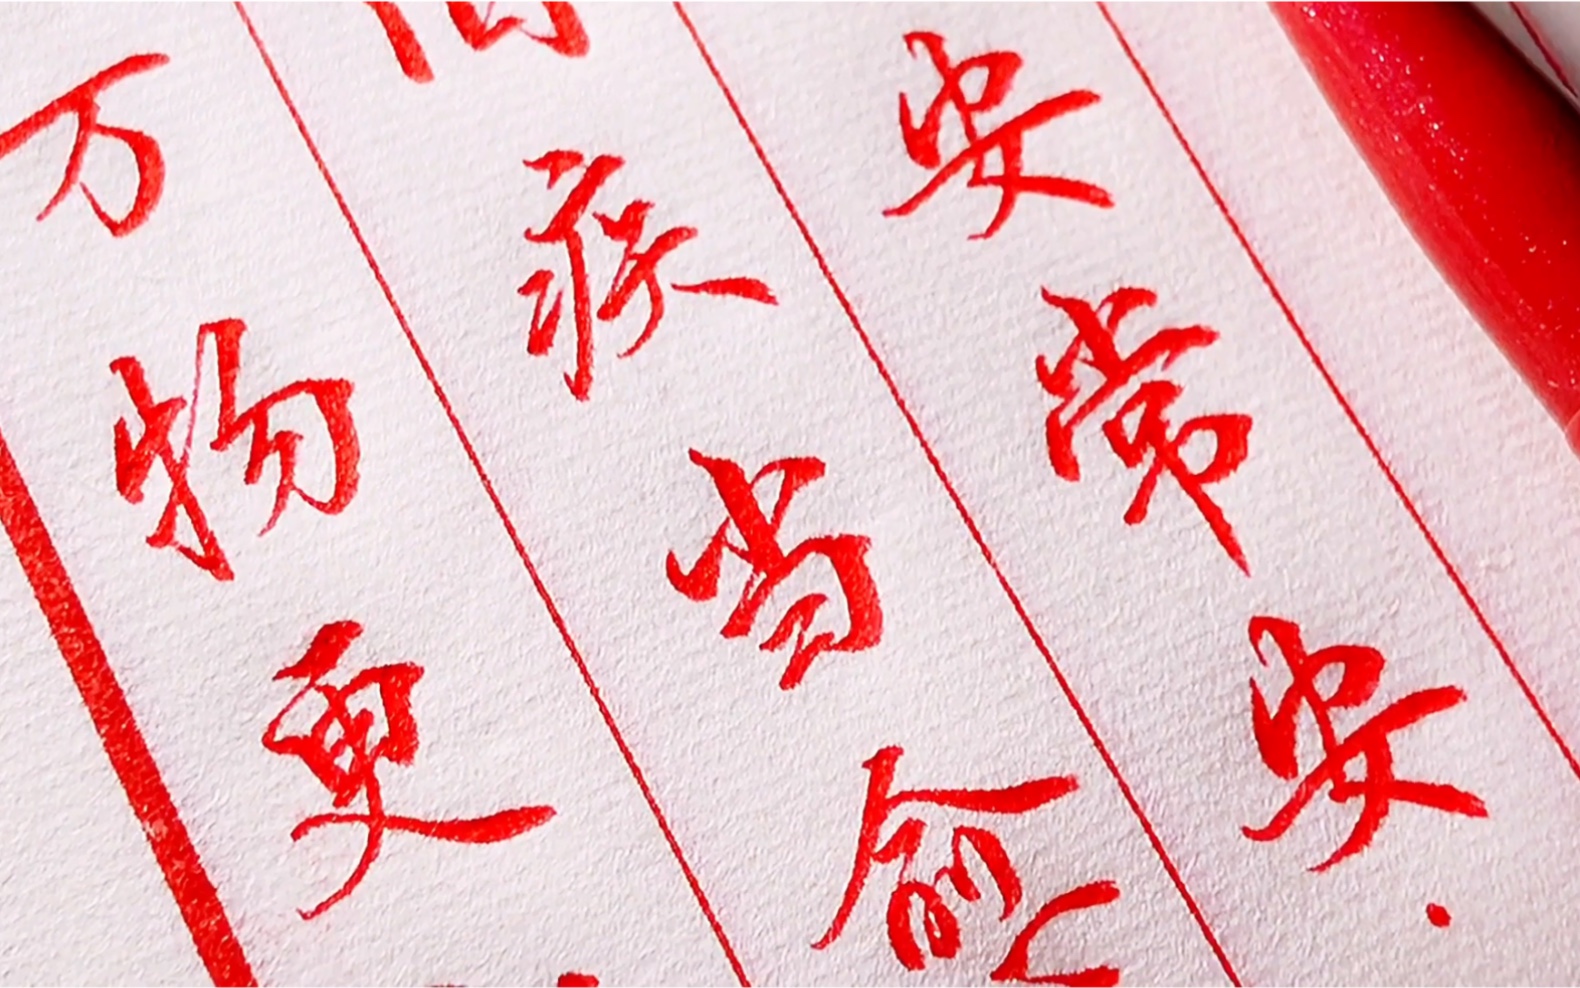 万物更
疾当愈
安常安.